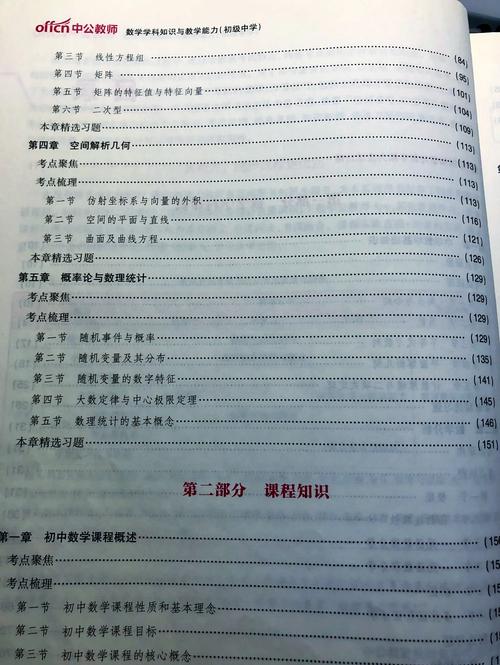 offcn中公教师 数学学科知识与教学能力(初级中学)
第三节 线性方程组 (84)
第四节 矩阵 (95)
第五节 矩阵的特征值与特征向量 (101)
第六节 二次型 (104)
本章精选习题 (109)
第四章 空间解析几何 (113)
考点聚焦 (113)
考点梳理 (113)
第一节 仿射坐标系与向量的外积 (113)
第二节 空间的平面与直线 (116)
第三节 曲面及曲线方程 (121)
本章精选习题 (126)
第五章 概率论与数理统计 (129)
考点聚焦 (129)
考点梳理 (129)
第一节 随机事件与概率 (129)
第二节 随机变量及其分布 (135)
第三节 随机变量的数字特征 (141)
第四节 大数定律与中心极限定理 (145)
第五节 数理统计的基本概念 (146)
本章精选习题 (151)
第二部分 课程知识
第一章 初中数学课程概述
考点聚焦
考点梳理
第一节 初中数学课程性质和基本理念
第二节 初中数学课程目标
第三节 初中数学课程的核心概念